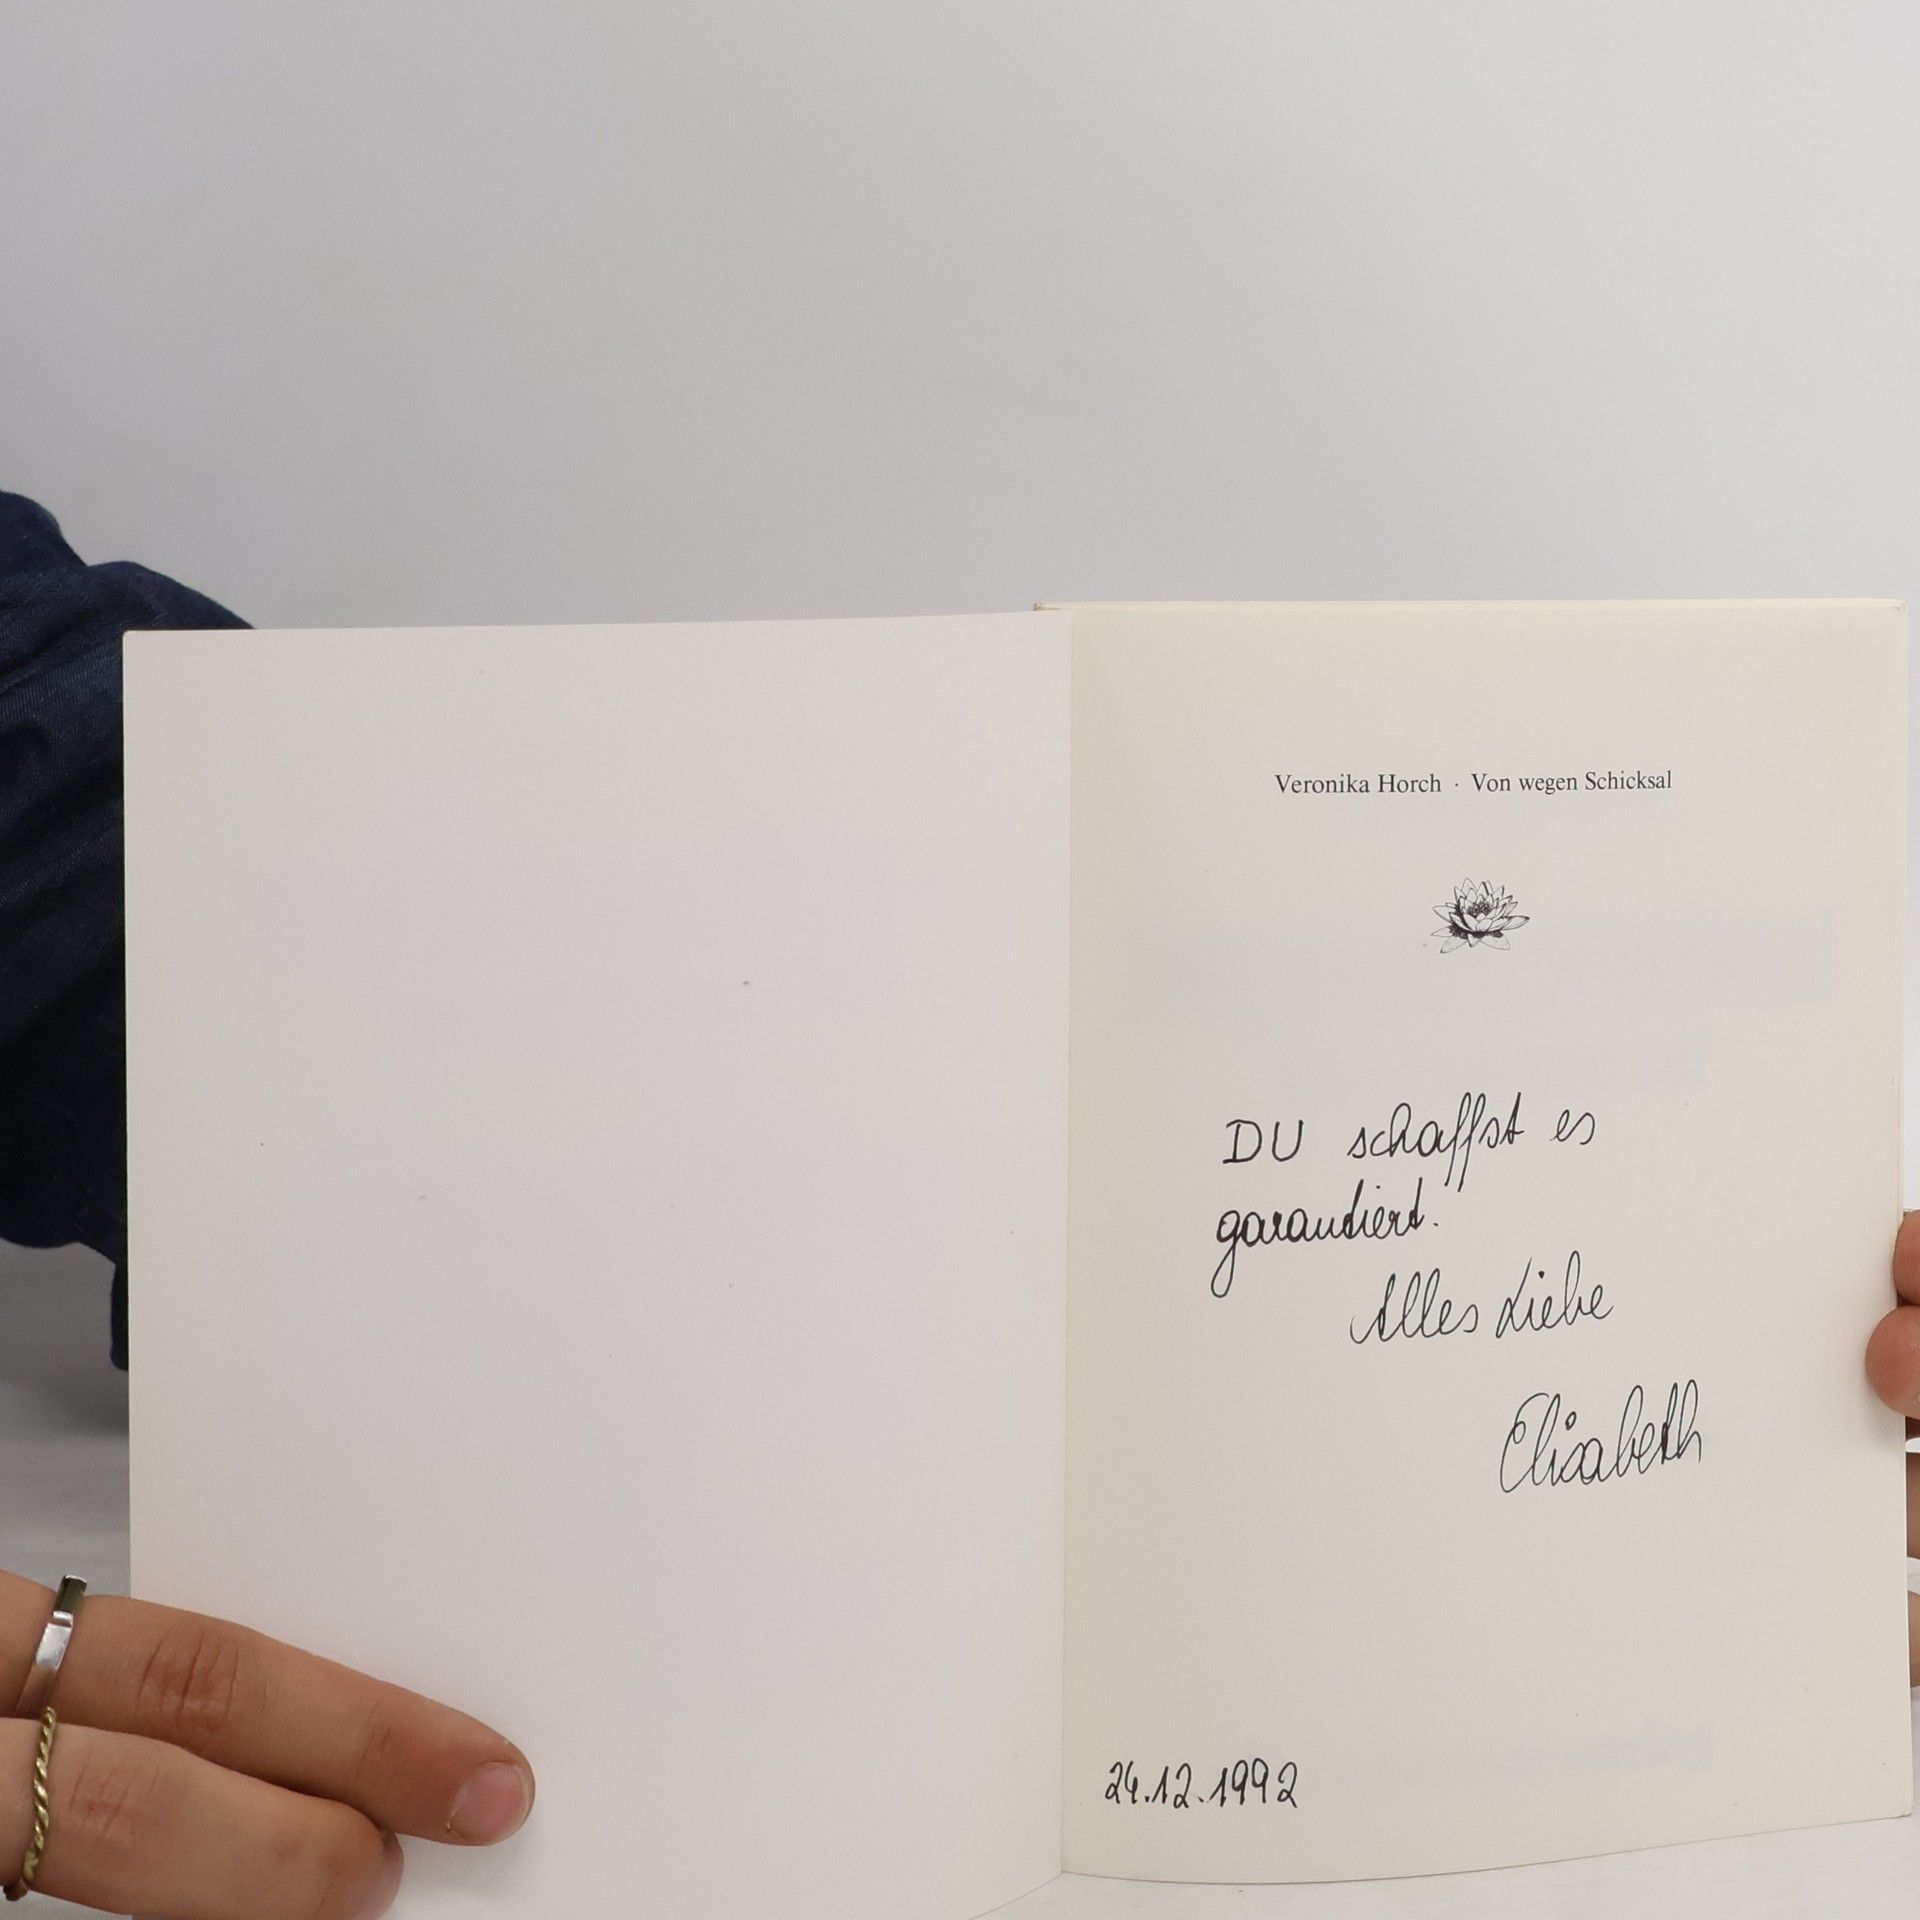 Veronika Horch · Von wegen Schicksal
DU schaffst es
garantiert.
Alles Liebe
Elisabeth
24.12.1992